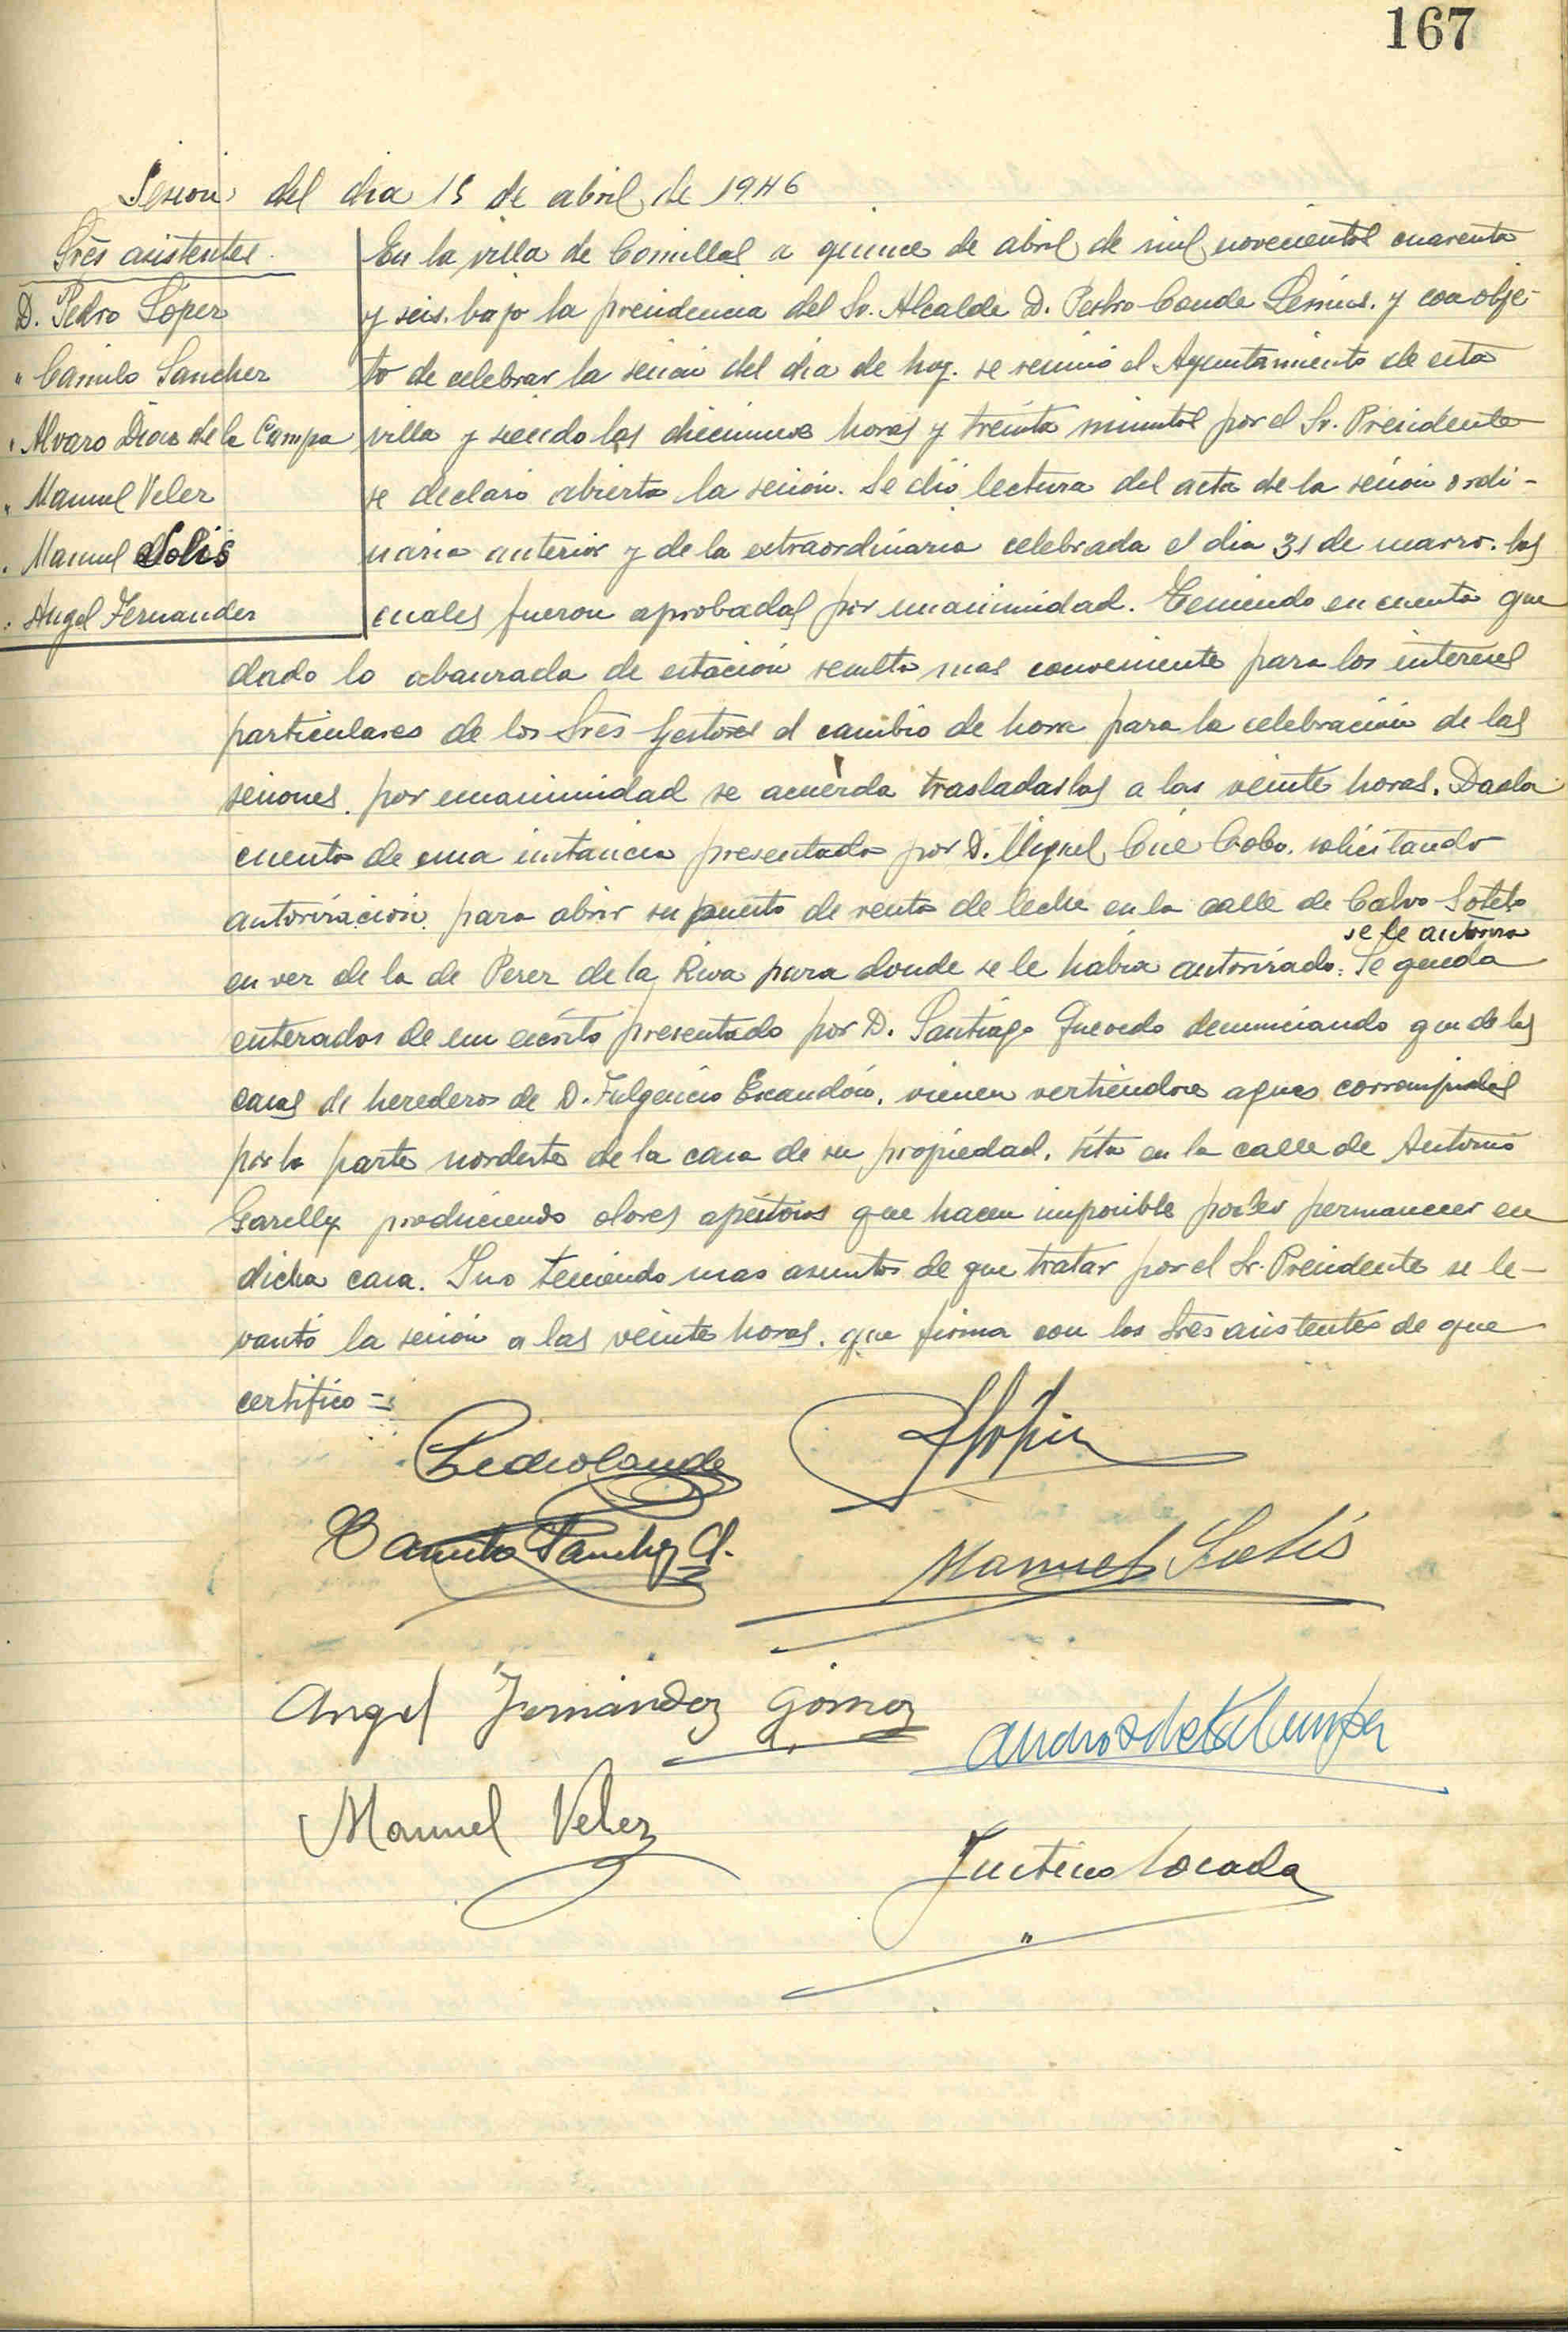 167
Sesion del dia 15 de abril de 1946
Sres asistentes.
D. Pedro López
" Camilo Sanchez
" Alvaro Diaz de la Campa
" Manuel Velez
" Manuel Solis
" Angel Fernandez
En la villa de Comillas a quince de abril de mil novecientos cuarenta
y seis. bajo la presidencia del Sr. Alcalde D. Pedro Conde Lemus. y con obje-
to de celebrar la sesion del dia de hoy. se reunió el Ayuntamiento de esta
villa y siendo las diecinueve horas y treinta minutos por el Sr. Presidente
se declaró abierta la sesión. Se dió lectura del acta de la sesión ordi-
naria anterior y de la extraordinaria celebrada el dia 31 de marzo. las
cuales fueron aprobadas por unanimidad. Teniendo en cuenta que
dado lo abanzada de estación resulta mas conveniente para los intereses
particulares de los Sres Gestores el cambio de hora para la celebración de las
sesiones. por unanimidad se acuerda trasladarlas a las veinte horas. Dada
cuenta de una instancia presentada por D. Miguel Cué Cobo. solicitando
autorización para abrir su puesto de venta de leche en la calle de Calvo Sotelo
se le autoriza
en vez de la de Perez de la Riva para donde se le habia autorizado. Se queda
enterados de un escrito presentado por D. Santiago Quevedo denunciando que de las
casas de herederos de D. Fulgencio Escandón. vienen vertiendose aguas corrompidas
por la parte nordeste de la casa de su propiedad. sita en la calle de Antonio
Garelly produciendo olores apestosos que hacen imposible poder permanecer en
dicha casa. Y no teniendo mas asuntos de que tratar por el Sr. Presidente se le-
vantó la sesión a las veinte horas. que firma con los Sres asistentes de que
certifico =
Pedro Conde
P López
Camilo Sanchez
Manuel Solis
Angel Fernández Gómez
Manuel Velez